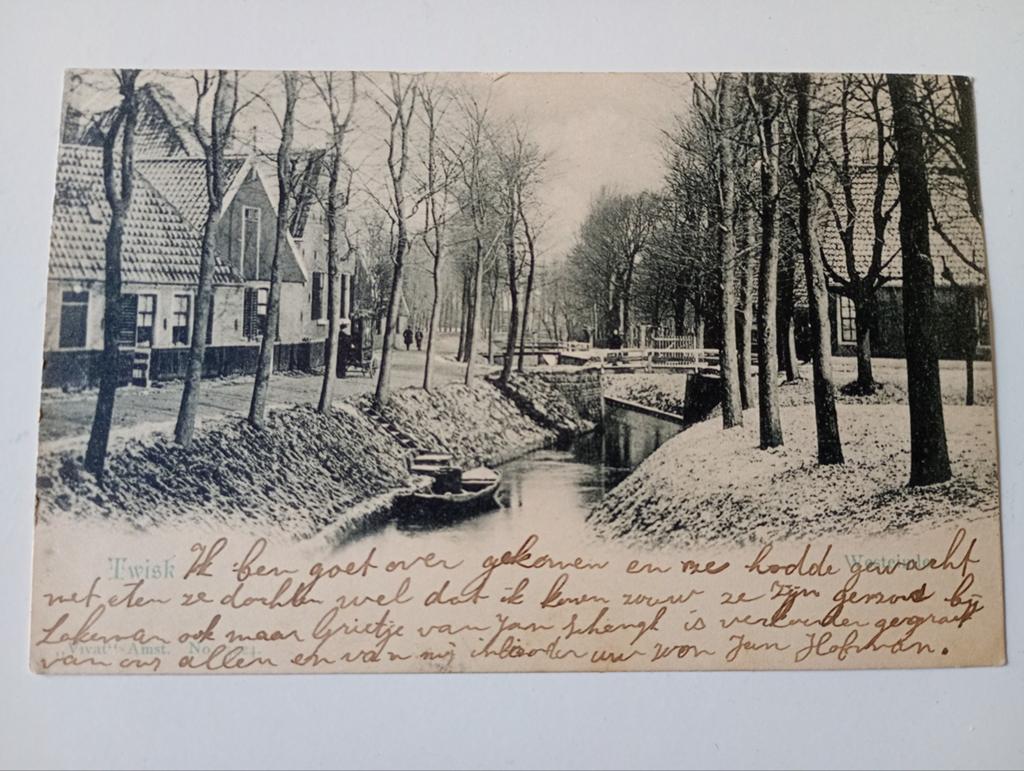 Twisk Westeinde
Ik ben goet over gekomen en ze hadde gewacht
met eten ze dachten wel dat ik komen zouw ze zijn gezond bij
Lakeman ook maar Grietje van Jan Schengk is verkouder gegroet
"Vivat" Amst. No.
van ons allen en van mij uw zoon Jan Hofman.